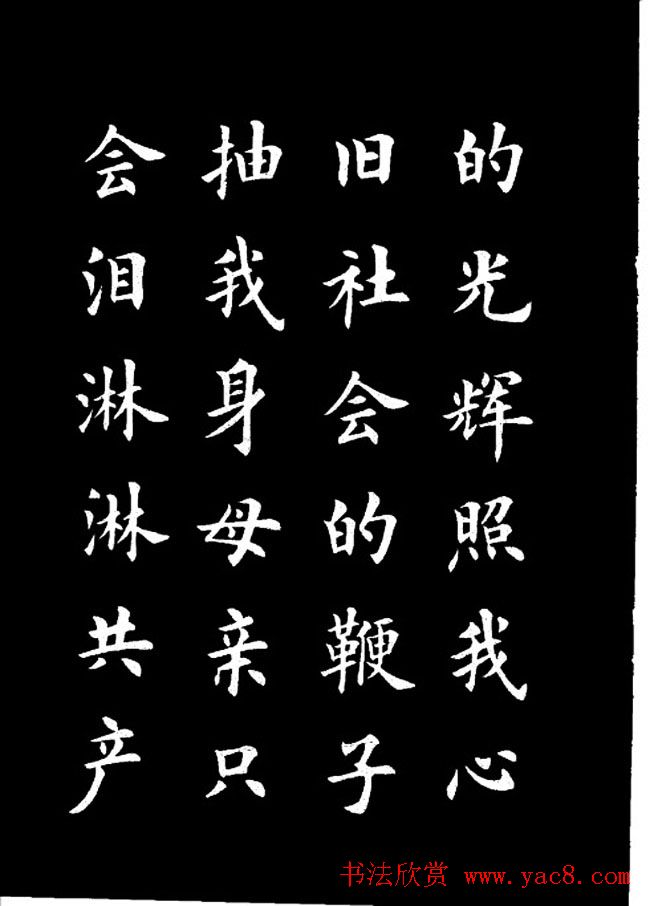 的光辉照我心
旧社会的鞭子
抽我身母亲只
会泪淋淋共产
书法欣赏 www.yac8.com